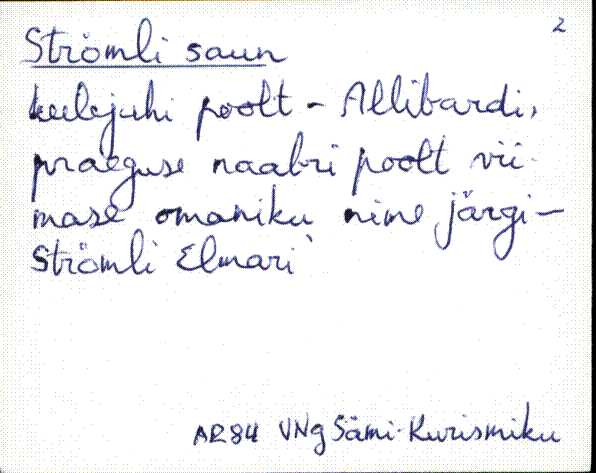 2
Strömli saun
keelejuhi poolt - Allibardi,
praeguse naabri poolt vii-
mase omaniku nime järgi -
Strömli Elmari
AR84 VNg Sämi-Kurismiku